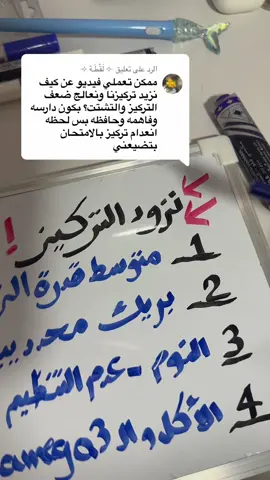 الرد على تعليق ✧ نُقْطَة ✧
ممكن تعملي فيديو عن كيف
نزيد تركيزنا ونعالج ضعف
التركيز والتشتت؟ بكون دارسه
وفاهمه وحافظه بس لحظه
انعدام تركيز بالامتحان
بتضيعني
نزود التركيز!
1 متوسط قدرة
2 بريك محدد
3 النوم - عدم التنظيم
4 الأكل والـ omega3